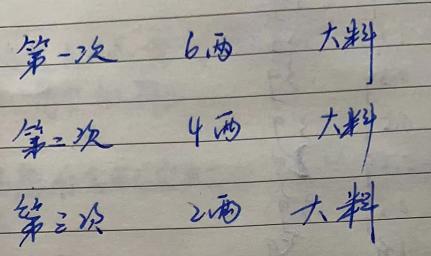 第一次 6两 大料
第二次 4两 大料
第三次 2两 大料